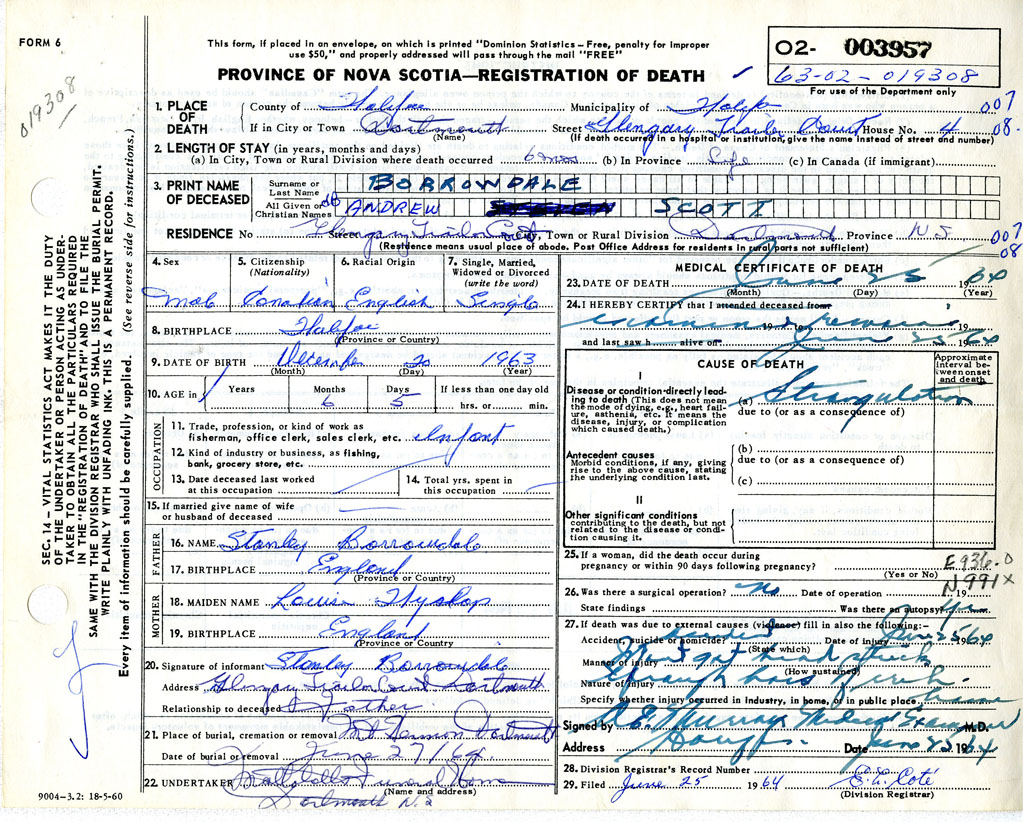 FORM 6
This form, if placed in an envelope, on which is printed "Dominion Statistics – Free, penalty for improper
use $50," and properly addressed will pass through the mail "FREE"
PROVINCE OF NOVA SCOTIA—REGISTRATION OF DEATH
02- 003957
63-02-019308
For use of the Department only
019308
1. PLACE OF DEATH
County of Halifax Municipality of Halifax 007
If in City or Town Dartmouth (Name) Street Glengary Trailer Court House No. 4 08.
(If death occurred in a hospital or institution, give the name instead of street and number)
2. LENGTH OF STAY (in years, months and days)
(a) In City, Town or Rural Division where death occurred 6 mos (b) In Province Life (c) In Canada (if immigrant)
3. PRINT NAME OF DECEASED
Surname or Last Name BORROWDALE
All Given or Christian Names ANDREW SCOTT
RESIDENCE No Street Glengary Trailer Court City, Town or Rural Division Dartmouth Province N S 007
(Residence means usual place of abode. Post Office Address for residents in rural parts not sufficient) 08
4. Sex Male
5. Citizenship (Nationality) Canadian
6. Racial Origin English
7. Single, Married, Widowed or Divorced (write the word) Single
8. BIRTHPLACE Halifax
(Province or Country)
9. DATE OF BIRTH December 20 1963
(Month) (Day) (Year)
10. AGE in Years Months 6 Days 5 If less than one day old hrs. or min.
OCCUPATION
11. Trade, profession, or kind of work as fisherman, office clerk, sales clerk, etc. Infant
12. Kind of industry or business, as fishing, bank, grocery store, etc.
13. Date deceased last worked at this occupation
14. Total yrs. spent in this occupation
15. If married give name of wife or husband of deceased
FATHER
16. NAME Stanley Borrowdale
17. BIRTHPLACE England
(Province or Country)
MOTHER
18. MAIDEN NAME Louise Hyslop
19. BIRTHPLACE England
(Province or Country
20. Signature of informant Stanley Borrowdale
Address Glengary Trailer Court Dartmouth
Relationship to deceased Father
21. Place of burial, cremation or removal Mt Hermon Dartmouth
Date of burial or removal June 27/64
22. UNDERTAKER Funeral Home
(Name and address)
Dartmouth N.S
9004-3.2: 18-5-60
MEDICAL CERTIFICATE OF DEATH
23. DATE OF DEATH June 25 1964
(Month) (Day) (Year)
24. I HEREBY CERTIFY that I attended deceased from
examined remains 19
and last saw h alive on June 25 64
CAUSE OF DEATH
Approximate interval between onset and death
I
Disease or condition directly leading to death (This does not mean the mode of dying, e.g., heart failure, asthenia, etc. It means the disease, injury, or complication which caused death.)
(a) Strangulation
due to (or as a consequence of)
Antecedent causes
Morbid conditions, if any, giving rise to the above cause, stating the underlying condition last.
(b)
due to (or as a consequence of)
(c)
II
Other significant conditions
contributing to the death, but not related to the disease or condition causing it.
25. If a woman, did the death occur during pregnancy or within 90 days following pregnancy?
(Yes or No)
E936.0
N991X
26. Was there a surgical operation? No Date of operation 19
State findings Was there an autopsy? yes
27. If death was due to external causes (violence) fill in also the following:—
Accident, suicide or homicide? accident Date of injury June 25 1964
(State which)
Manner of injury Infant got head stuck
(How sustained)
Nature of injury through bars of crib
Specify whether injury occurred in industry, in home, or in public place. home
Signed by E. Murray Medical Examiner M.D.
Address Date June 25 1964
28. Division Registrar's Record Number
29. Filed June 25 1964 E. L. Coté
(Division Registrar)
SEC. 14 – VITAL STATISTICS ACT MAKES IT THE DUTY
OF THE UNDERTAKER OR PERSON ACTING AS UNDER-
TAKER TO OBTAIN ALL THE PARTICULARS REQUIRED
IN THE "REGISTRATION OF DEATH" AND TO FILE THE
SAME WITH THE DIVISION REGISTRAR WHO SHALL ISSUE THE BURIAL PERMIT.
WRITE PLAINLY WITH UNFADING INK. THIS IS A PERMANENT RECORD.
Every item of information should be carefully supplied. (See reverse side for instructions.)